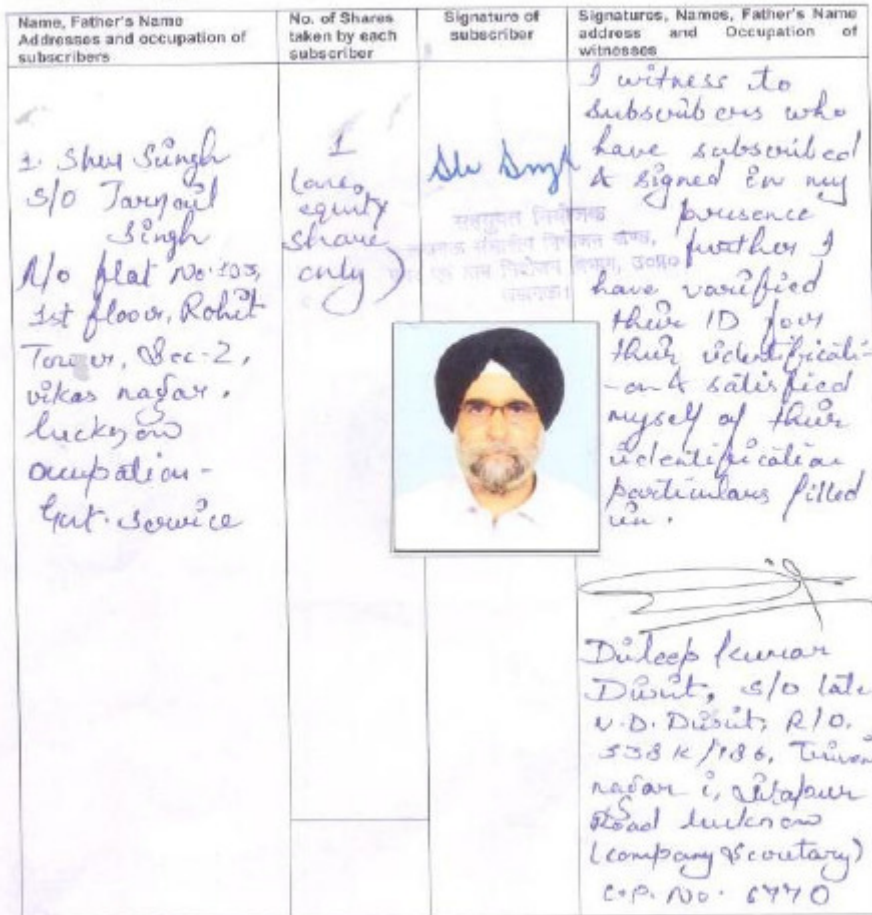 Name, Father's Name
Addresses and occupation of
subscribers
No. of Shares
taken by each
subscriber
Signature of
subscriber
Signatures, Names, Father's Name
address and Occupation of
witnesses
1. Sher Singh
S/O
Singh
R/o flat No. 103,
1st floor, Rohit
Tower, Sec-2,
vikas nagar,
lucknow
ocupation-
Govt. service
1
(one
equity
share
only)
सहयुक्त नियोजक
संभागीय नियोजन खण्ड,
एवं ग्राम नियोजन विभाग, उ०प्र०
I witness to
subscribers who
have subscribed
& signed in my
presence
further I
have varified
their ID for
their identificati-
-on & satisfied
myself of their
identification
particulars filled
in.
Dileep kumar
Dixit, S/o late
N.D. Dixit, R/O.
538 K/186, Triveni
nagar i, Sitapur
Road lucknow
(company Secretary)
C.P. No. 6770